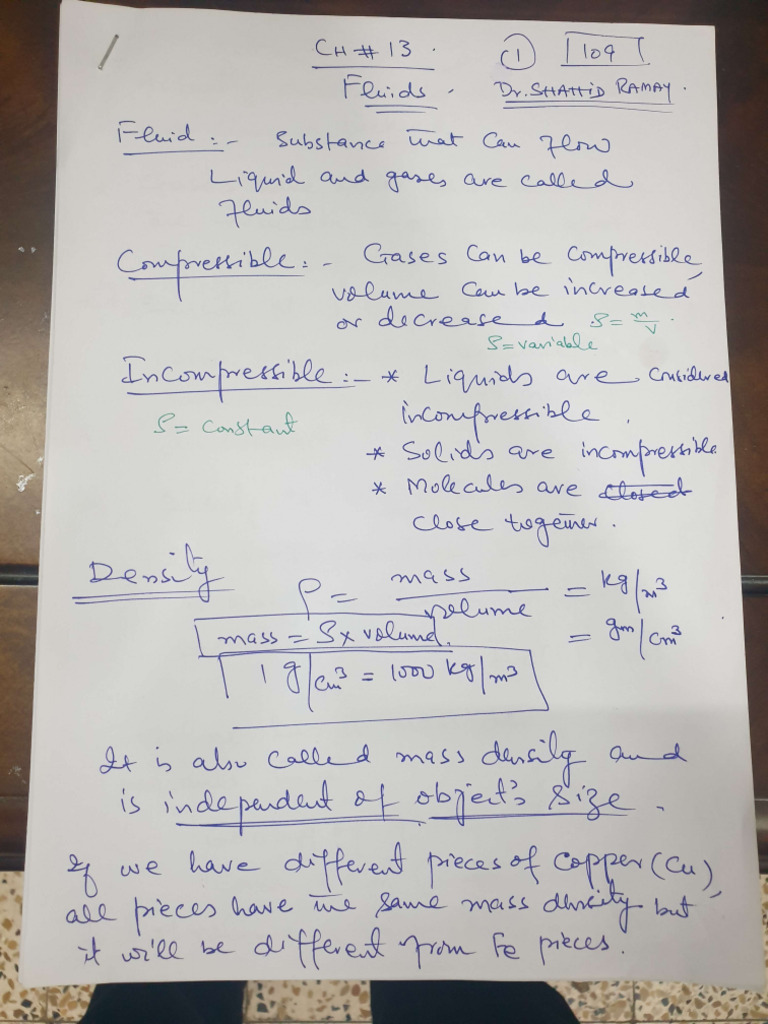 CH # 13 . ① 109
Fluids . Dr. SHAHID RAMAY .
Fluid :- Substance that Can Flow
Liquid and gases are called
Fluids
Compressible :- Gases Can be Compressible,
volume Can be increased
or decreased ρ = m/v .
ρ = variable
Incompressible :- * Liquids are Considered
ρ = Constant incompressible .
* Solids are incompressible
* Molecules are closed
close together .
Density ρ = mass/volume = kg/m³
mass = ρ x volume . = gm/cm³
1 g/cm³ = 1000 kg/m³
It is also called mass density and
is independent of object's size .
If we have different pieces of Copper (Cu),
all pieces have the same mass density but
it will be different from Fe pieces .